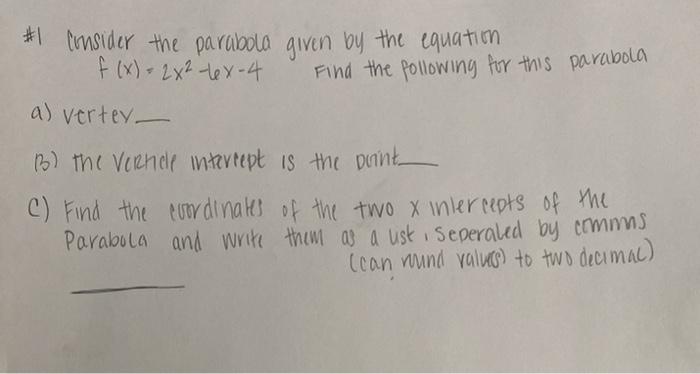 #1 Consider the parabola given by the equation
f (x) = 2x² -6x-4 Find the following for this parabola
a) vertex
B) the Verticle intercept is the point
C) Find the coordinates of the two x intercepts of the
Parabola and write them as a list, seperated by commns
(can round values) to two decimal)